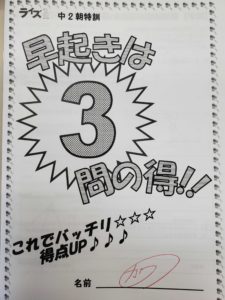 ライズ 中2朝特訓
早起きは
3
問の得!!
これでバッチリ☆☆☆
得点UP♪♪♪
名前